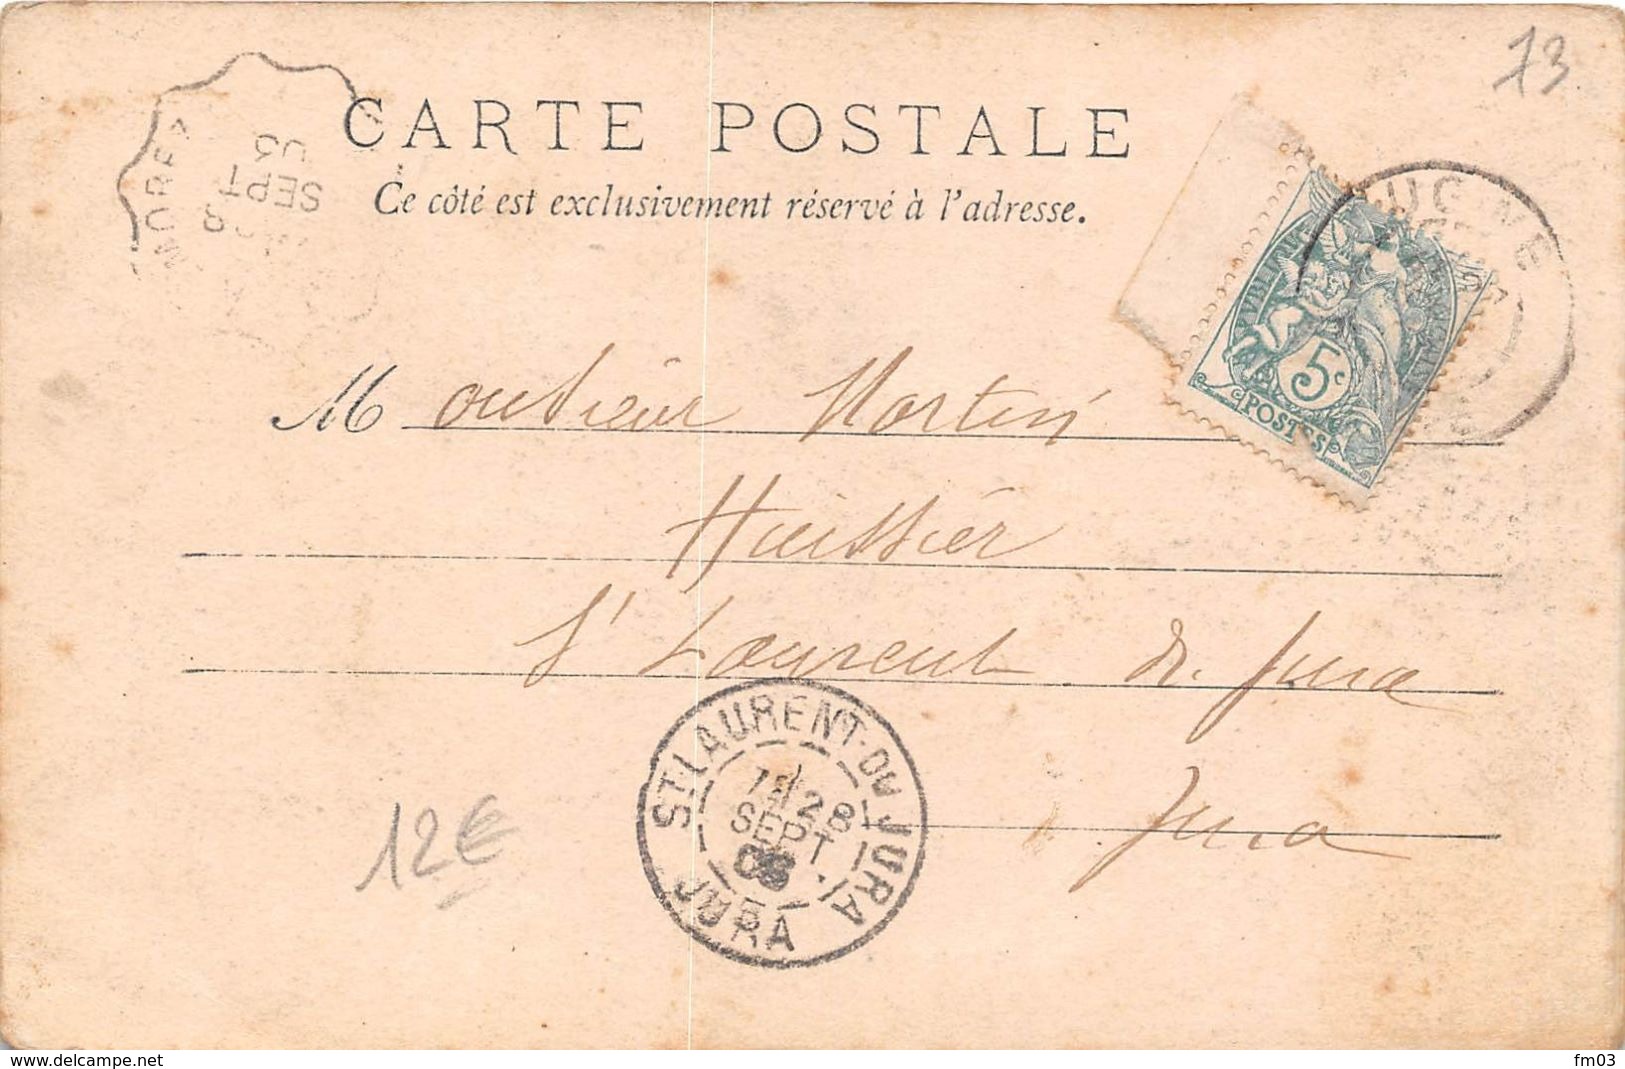 73
CARTE POSTALE
Ce côté est exclusivement réservé à l'adresse.
MOREZ
SEPT
03
UGINE
5c
POSTES
Monsieur Martin
Huissier
St Laurent du Jura
Jura
ST LAURENT-DU-JURA
28
SEPT
03
JURA
12€
delcampe.net
fm03